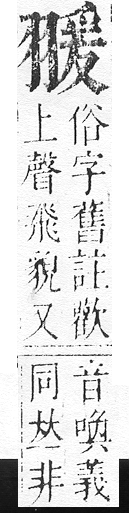 俗字舊註歡
上聲飛貌又
音喚義
同𠀤非